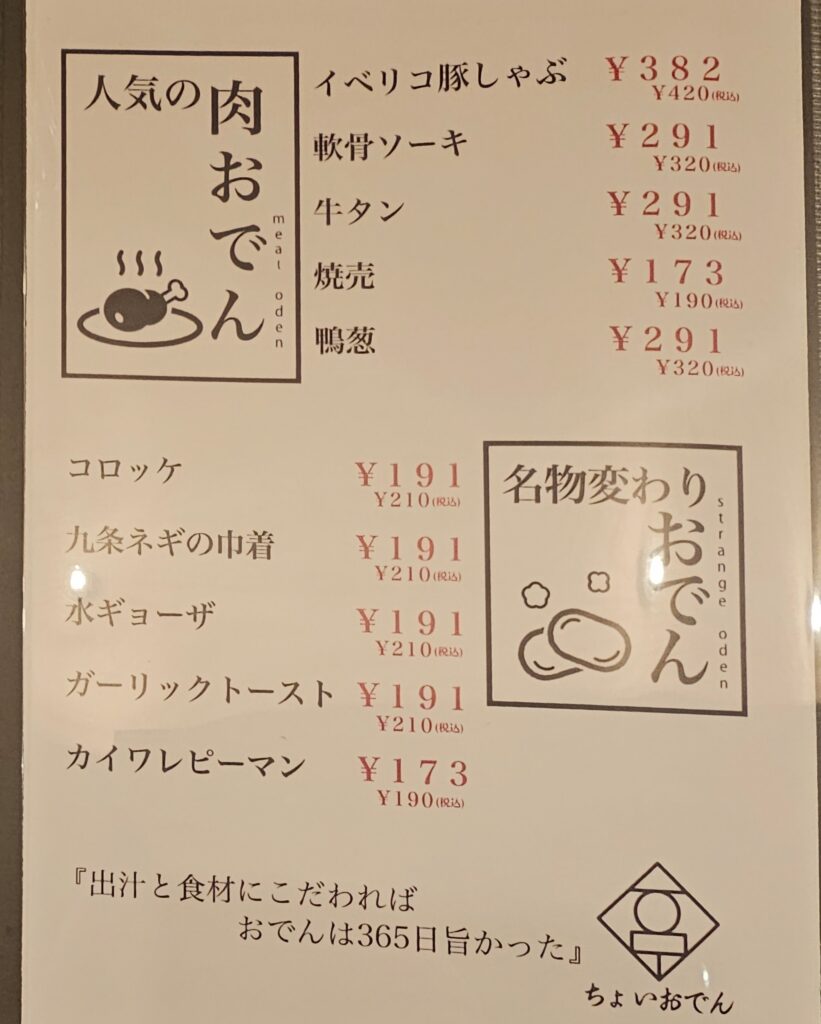 人気の
肉おでん
meat oden
イベリコ豚しゃぶ ¥382
¥420(税込)
軟骨ソーキ ¥291
¥320(税込)
牛タン ¥291
¥320(税込)
焼売 ¥173
¥190(税込)
鴨葱 ¥291
¥320(税込)
名物変わり
おでん
strange oden
コロッケ ¥191
¥210(税込)
九条ネギの巾着 ¥191
¥210(税込)
水ギョーザ ¥191
¥210(税込)
ガーリックトースト ¥191
¥210(税込)
カイワレピーマン ¥173
¥190(税込)
『出汁と食材にこだわれば
おでんは365日旨かった』
ちょいおでん